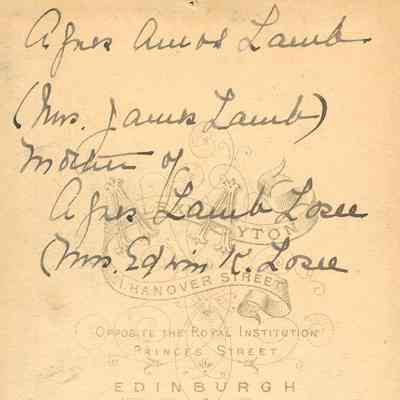 Agnes Amos Lamb
(Mrs. James Lamb)
Mother of
Agnes Lamb Losee
(Mrs. Edwin K. Losee
AYTON
HANOVER STREET
OPPOSITE THE ROYAL INSTITUTION
PRINCES STREET
EDINBURGH